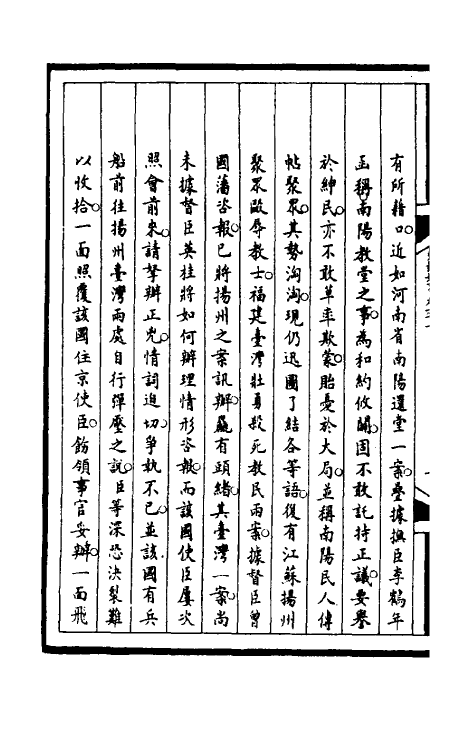 有所藉口近如河南省南陽還堂一案疊據撫臣李鶴年
函稱南陽教堂之事為和約攸關固不敢託持正議要譽
於紳民亦不敢草率欺蒙貽憂於大局並稱南陽民人傳
帖聚眾其勢洶洶現仍迅圖了結各等語復有江蘇揚州
聚眾毆辱教士福建臺灣壯勇殺死教民兩案據督臣曾
國藩咨報已將揚州之案訊辦麤有頭緒其臺灣一案尚
未據督臣英桂將如何辦理情形咨報而該國使臣屢次
照會前來請拏辦正兇情詞迫切爭執不已並該國有兵
船前往揚州臺灣兩處自行彈壓之說臣等深恐決裂難
以收拾一面照覆該國住京使臣飭領事官妥辦一面飛